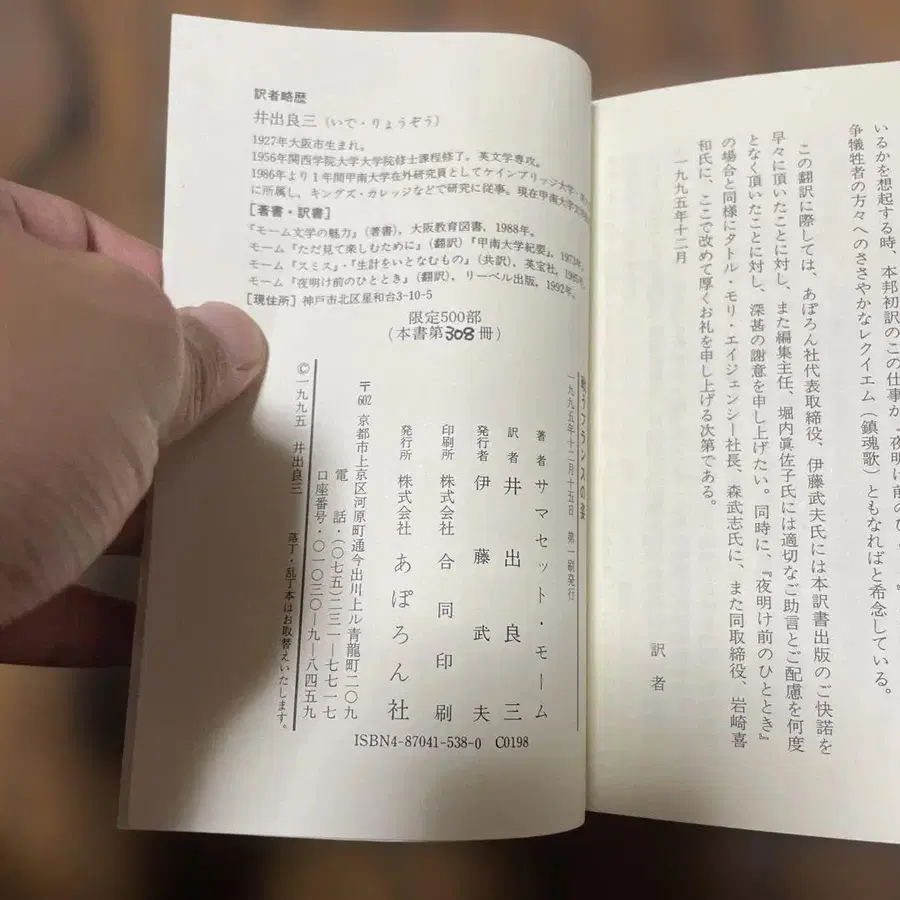 いるかを想起する時、本邦初訳のこの仕事が『夜明け前のひ
争犠牲者の方々へのささやかなレクイエム（鎮魂歌）ともなればと希念している。
この翻訳に際しては、あぽろん社代表取締役、伊藤武夫氏には本訳書出版のご快諾を
早々に頂いたことに対し、また編集主任、堀内眞佐子氏には適切なご助言とご配慮を何度
となく頂いたことに対し、深甚の謝意を申し上げたい。同時に、『夜明け前のひととき』
の場合と同様にタトル・モリ・エイジェンシー社長、森武志氏に、また同取締役、岩崎喜
和氏に、ここで改めて厚くお礼を申し上げる次第である。
一九九五年十二月
訳者
訳者略歴
井出良三（いで・りょうぞう）
1927年大阪市生まれ。
1956年関西学院大学大学院修士課程修了。英文学専攻。
1986年より1年間甲南大学在外研究員としてケインブリッジ大学
に所属し、キングズ・カレッジなどで研究に従事。現在甲南大学
［著書・訳書］
『モーム文学の魅力』（著書）、大阪教育図書、1988年。
モーム『ただ見て楽しむために』（翻訳）『甲南大学紀要』、1973年。
モーム『スミス』・『生計をいとなむもの』（共訳）、英宝社、1985年。
モーム『夜明け前のひととき』（翻訳）、リーベル出版、1992年。
［現住所］神戸市北区星和台3-10-5
限定500部
（本書第308冊）
うフランスの姿
一九九五年十二月十五日　第一刷発行
著者　サマセット・モーム
訳者　井出良三
発行者　伊藤武夫
印刷所　株式会社　合同印刷
発行所　株式会社　あぽろん社
〒602　京都市上京区河原町通今出川上ル青龍町二〇九
電話・（〇七五）二三一―七七一七
口座番号・〇一〇三〇―九―八四五九
©一九九五　井出良三　落丁・乱丁本はお取替えいたします。
ISBN4-87041-538-0　C0198